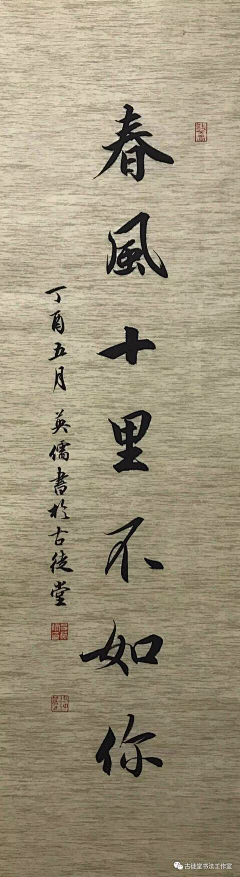 春風十里不如你
丁酉五月 英儒書於古徒堂
古徒堂书法工作室